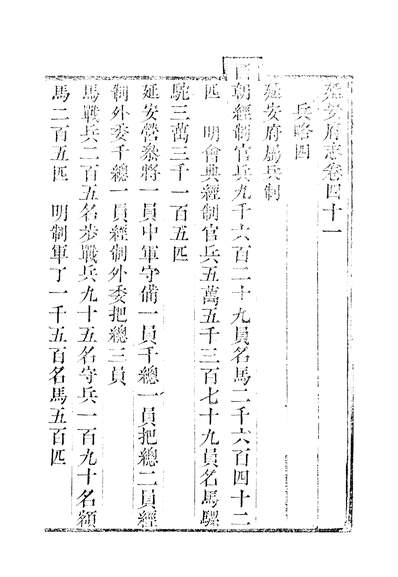 延安府志卷四十一
兵略四
延安府屬兵制
國朝經制官兵九千六百二十九員名馬二千六百四十二
匹　明會典經制官兵五萬五千三百七十九員名馬騾
駝三萬三千一百五匹
延安營叅將一員中軍守備一員千總一員把總二員經
制外委千總一員經制外委把總三員
馬戰兵二百五名步戰兵九十五名守兵一百九十名額
馬二百五匹　明制軍丁一千五百名馬五百匹